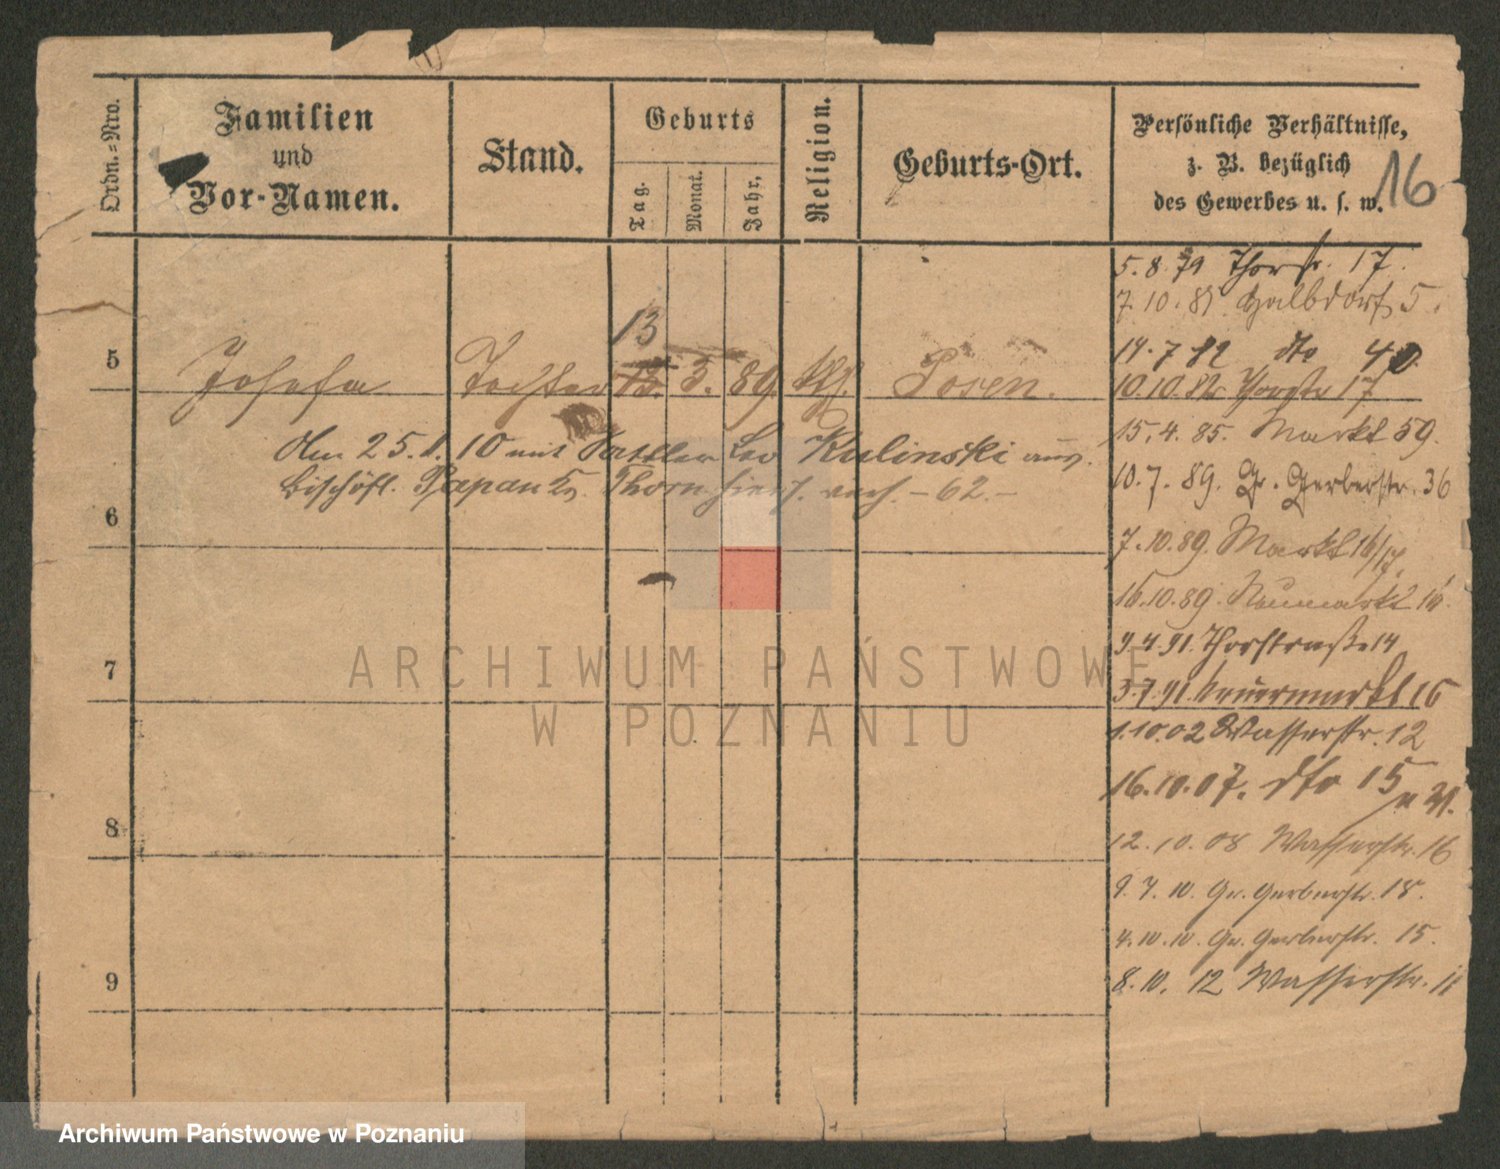 Ordn.=Nro.
Familien
und
Vor-Namen.
Stand.
Geburts
Tag.
Monat.
Jahr.
Religion.
Geburts-Ort.
Persönliche Verhältnisse,
z. B. bezüglich
des Gewerbes u. s. w.
16
5. 8. 79 Thorstr. 17.
7. 10. 81 Halbdorf 5.
13
14. 7 82 dto 40.
5 Josefa Tochter 12. 3. 89. kth. Posen.
10. 10. 82 Thorstr 17
Am 25.1.10 mit Sattler Leo Kulinski aus
15. 4. 85. Markt 59.
Bischöfl. Papau Kr. Thorn hier verh. - 62. -
10. 7. 89. Gr. Gerberstr. 36
6
7. 10. 89. Markt 16/17.
16. 10. 89. Neumarkt 16.
9. 4. 91. Thorstraße 14
7
3. 7. 91. Neuermarkt 16
1. 10. 02 Wasserstr. 12
16. 10. 07. dto 15
12. 10. 08 Wasserstr. 16
8
9. 7. 10. Gr. Gerberstr. 18.
4. 10. 10. Gr. Gerberstr. 15.
9
8. 10. 12 Wasserstr. 11
ARCHIWUM PAŃSTWOWE
W POZNANIU
Archiwum Państwowe w Poznaniu